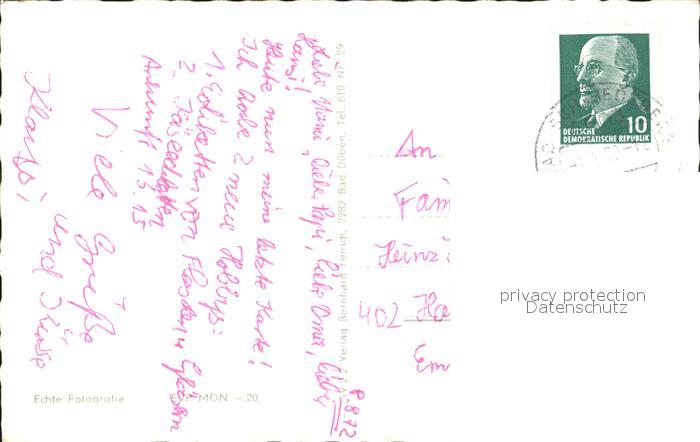 8.8.72
Liebe Mami, liebe Papi, liebe Oma, lieber
Hansi!
Heute nun meine letzte Karte!
Ich habe 2 neue Hobbys:
1. Etiketten von Flaschen u. Gläsern
2. 
Ankunft 13.15
Viele Grüße
und Küsse
Klausi
An
Fam
Heinz
402 Ha
Em
DEUTSCHE
DEMOKRATISCHE REPUBLIK
10
privacy protection
Datenschutz
Verlag Bernhard Fensch, 7282 Bad Düben, Tel. 610 Nr. 29
Echte Fotografie
EVP MDN –.20